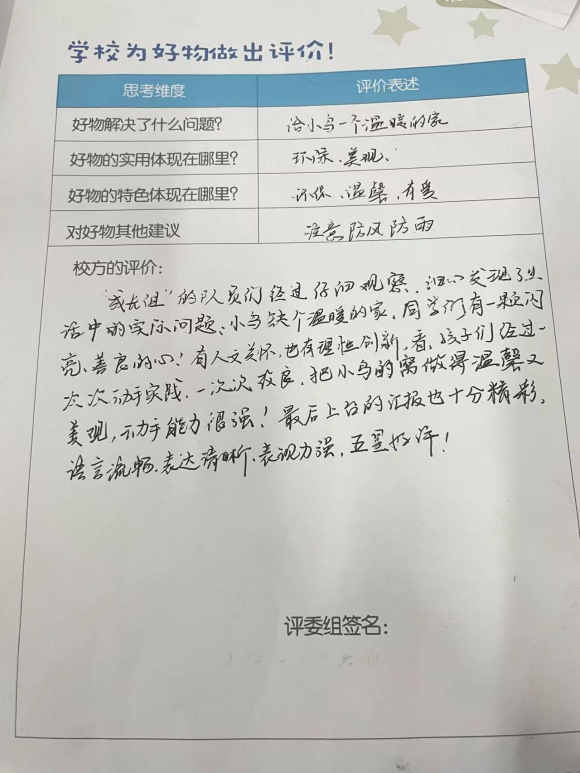 学校为好物做出评价!
思考维度 评价表述
好物解决了什么问题? 给小鸟一个温暖的家
好物的实用体现在哪里? 环保、美观、
好物的特色体现在哪里? 环保、温馨、有爱
对好物其他建议 注意防风防雨
校方的评价:
"成长组"的队员们经过仔细观察,细心发现了生
活中的实际问题、小鸟缺个温暖的家,同学们有一颗闪
亮、善良的心!有人文关怀,也有理性创新,看,孩子们经过一
次次动手实践,一次次改良,把小鸟的窝做得温馨又
美观,动手能力很强!最后上台的汇报也十分精彩,
语言流畅、表达清晰、表现力强,五星好评!
评委组签名: